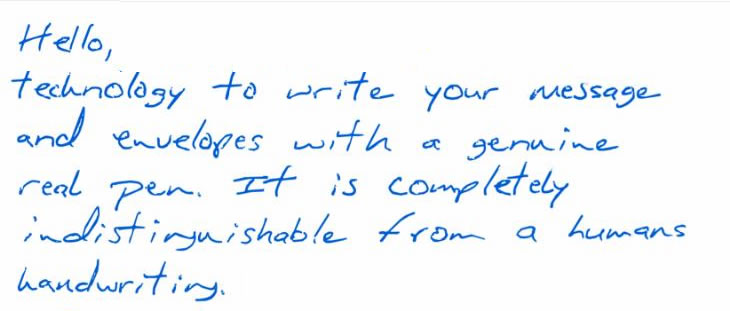 Hello,
technology to write your message
and envelopes with a genuine
real pen. It is completely
indistinguishable from a humans
handwriting.